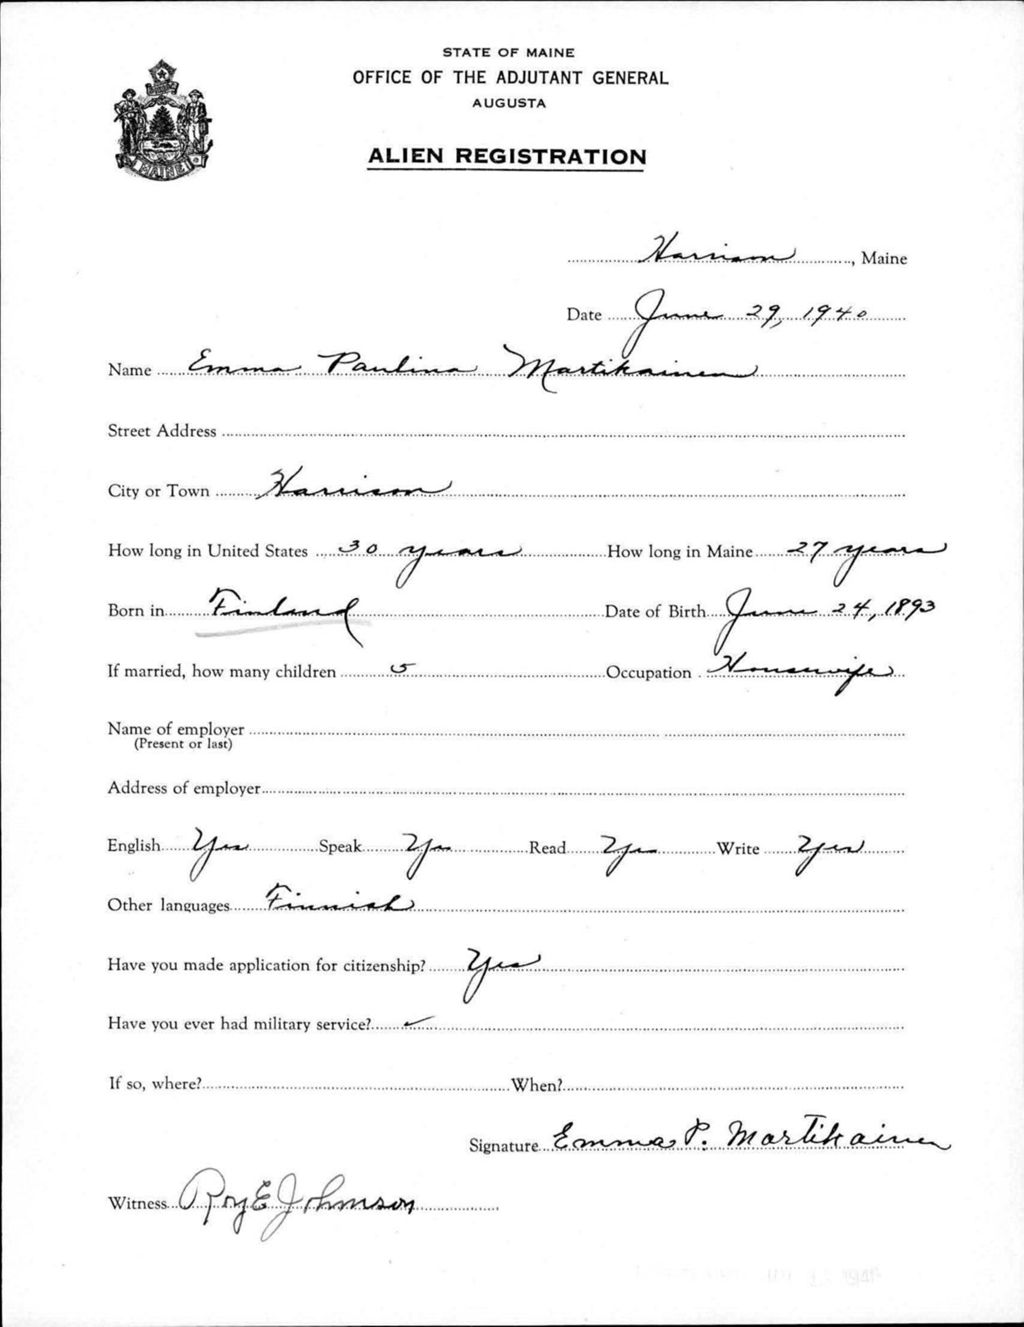 STATE OF MAINE
OFFICE OF THE ADJUTANT GENERAL
AUGUSTA
ALIEN REGISTRATION
MAINE
Harrison, Maine
Date June 29, 1940
Name Emma Paulina Martikainen
Street Address
City or Town Harrison
How long in United States 30 years How long in Maine 27 years
Born in Finland Date of Birth June 24, 1893
If married, how many children 5 Occupation Housewife
Name of employer
(Present or last)
Address of employer
English Yes Speak Yes Read Yes Write Yes
Other languages Finnish
Have you made application for citizenship? Yes
Have you ever had military service?
If so, where? When?
Signature Emma P. Martikainen
Witness Roy E Johnson